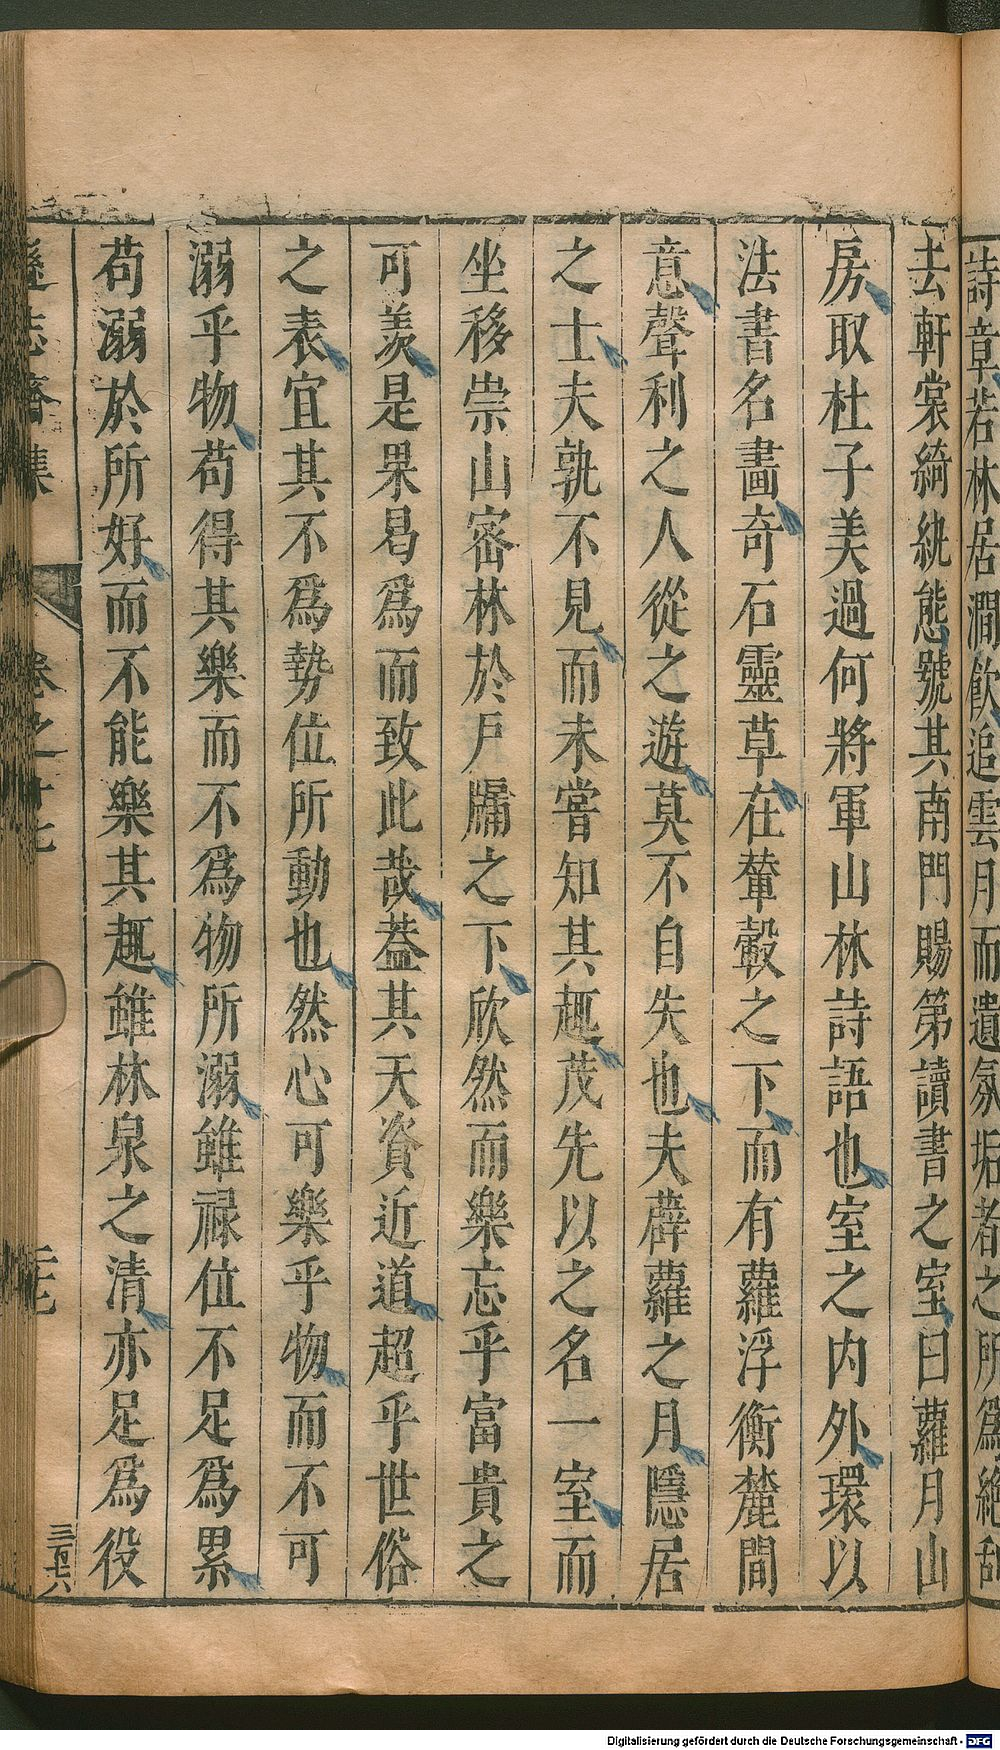 詩章若林居澗飮追雲月而遺氛垢者之所爲絶刮
去軒裳綺紈態號其南門賜第讀書之室曰蘿月山
房取杜子美過何將軍山林詩語也室之内外環以
法書名畫奇石靈草在輦轂之下而有蘿浮衡麓間
意聲利之人從之遊莫不自失也夫薜蘿之月隱居
之士夫孰不見而未嘗知其趣茂先以之名一室而
坐移崇山密林於戶牖之下欣然而樂忘乎富貴之
可羨是果曷爲而致此哉葢其天資近道超乎世俗
之表宜其不爲勢位所動也然心可樂乎物而不可
溺乎物苟得其樂而不爲物所溺雖祿位不足爲累
苟溺於所好而不能樂其趣雖林泉之清亦足爲役
遜志齋集
卷之十七
三百七六
Digitalisierung gefördert durch die Deutsche Forschungsgemeinschaft - DFG